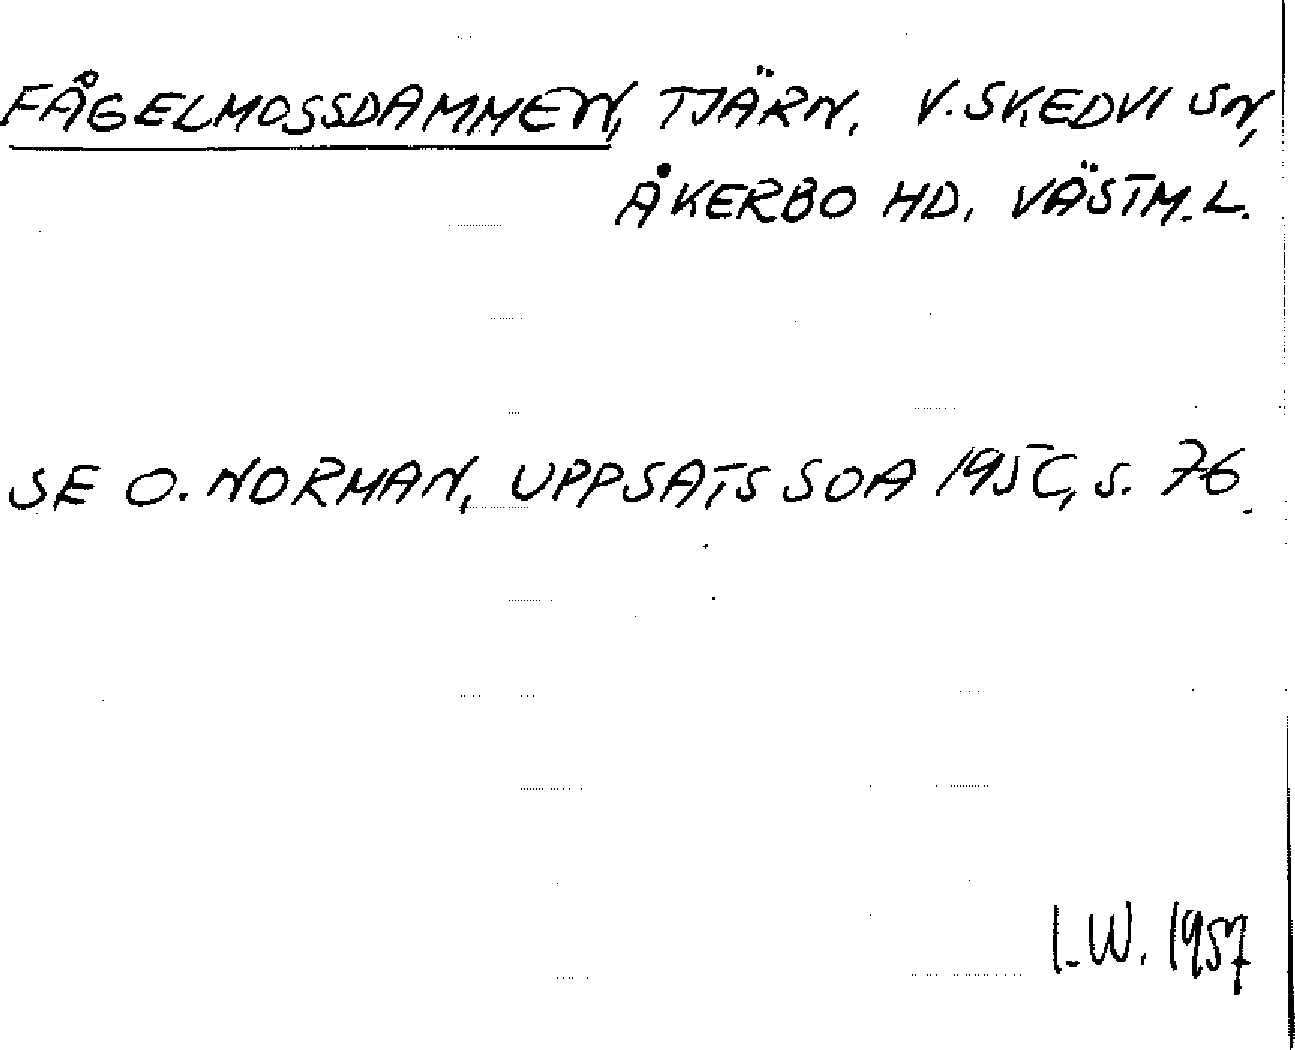 FÅGELMOSSDAMMEN, TJÄRN, V. SKEDVI SN,
ÅKERBO HD, VÄSTM. L.
SE O. NORMAN, UPPSATS SOA s. 76.
I.W. 1957